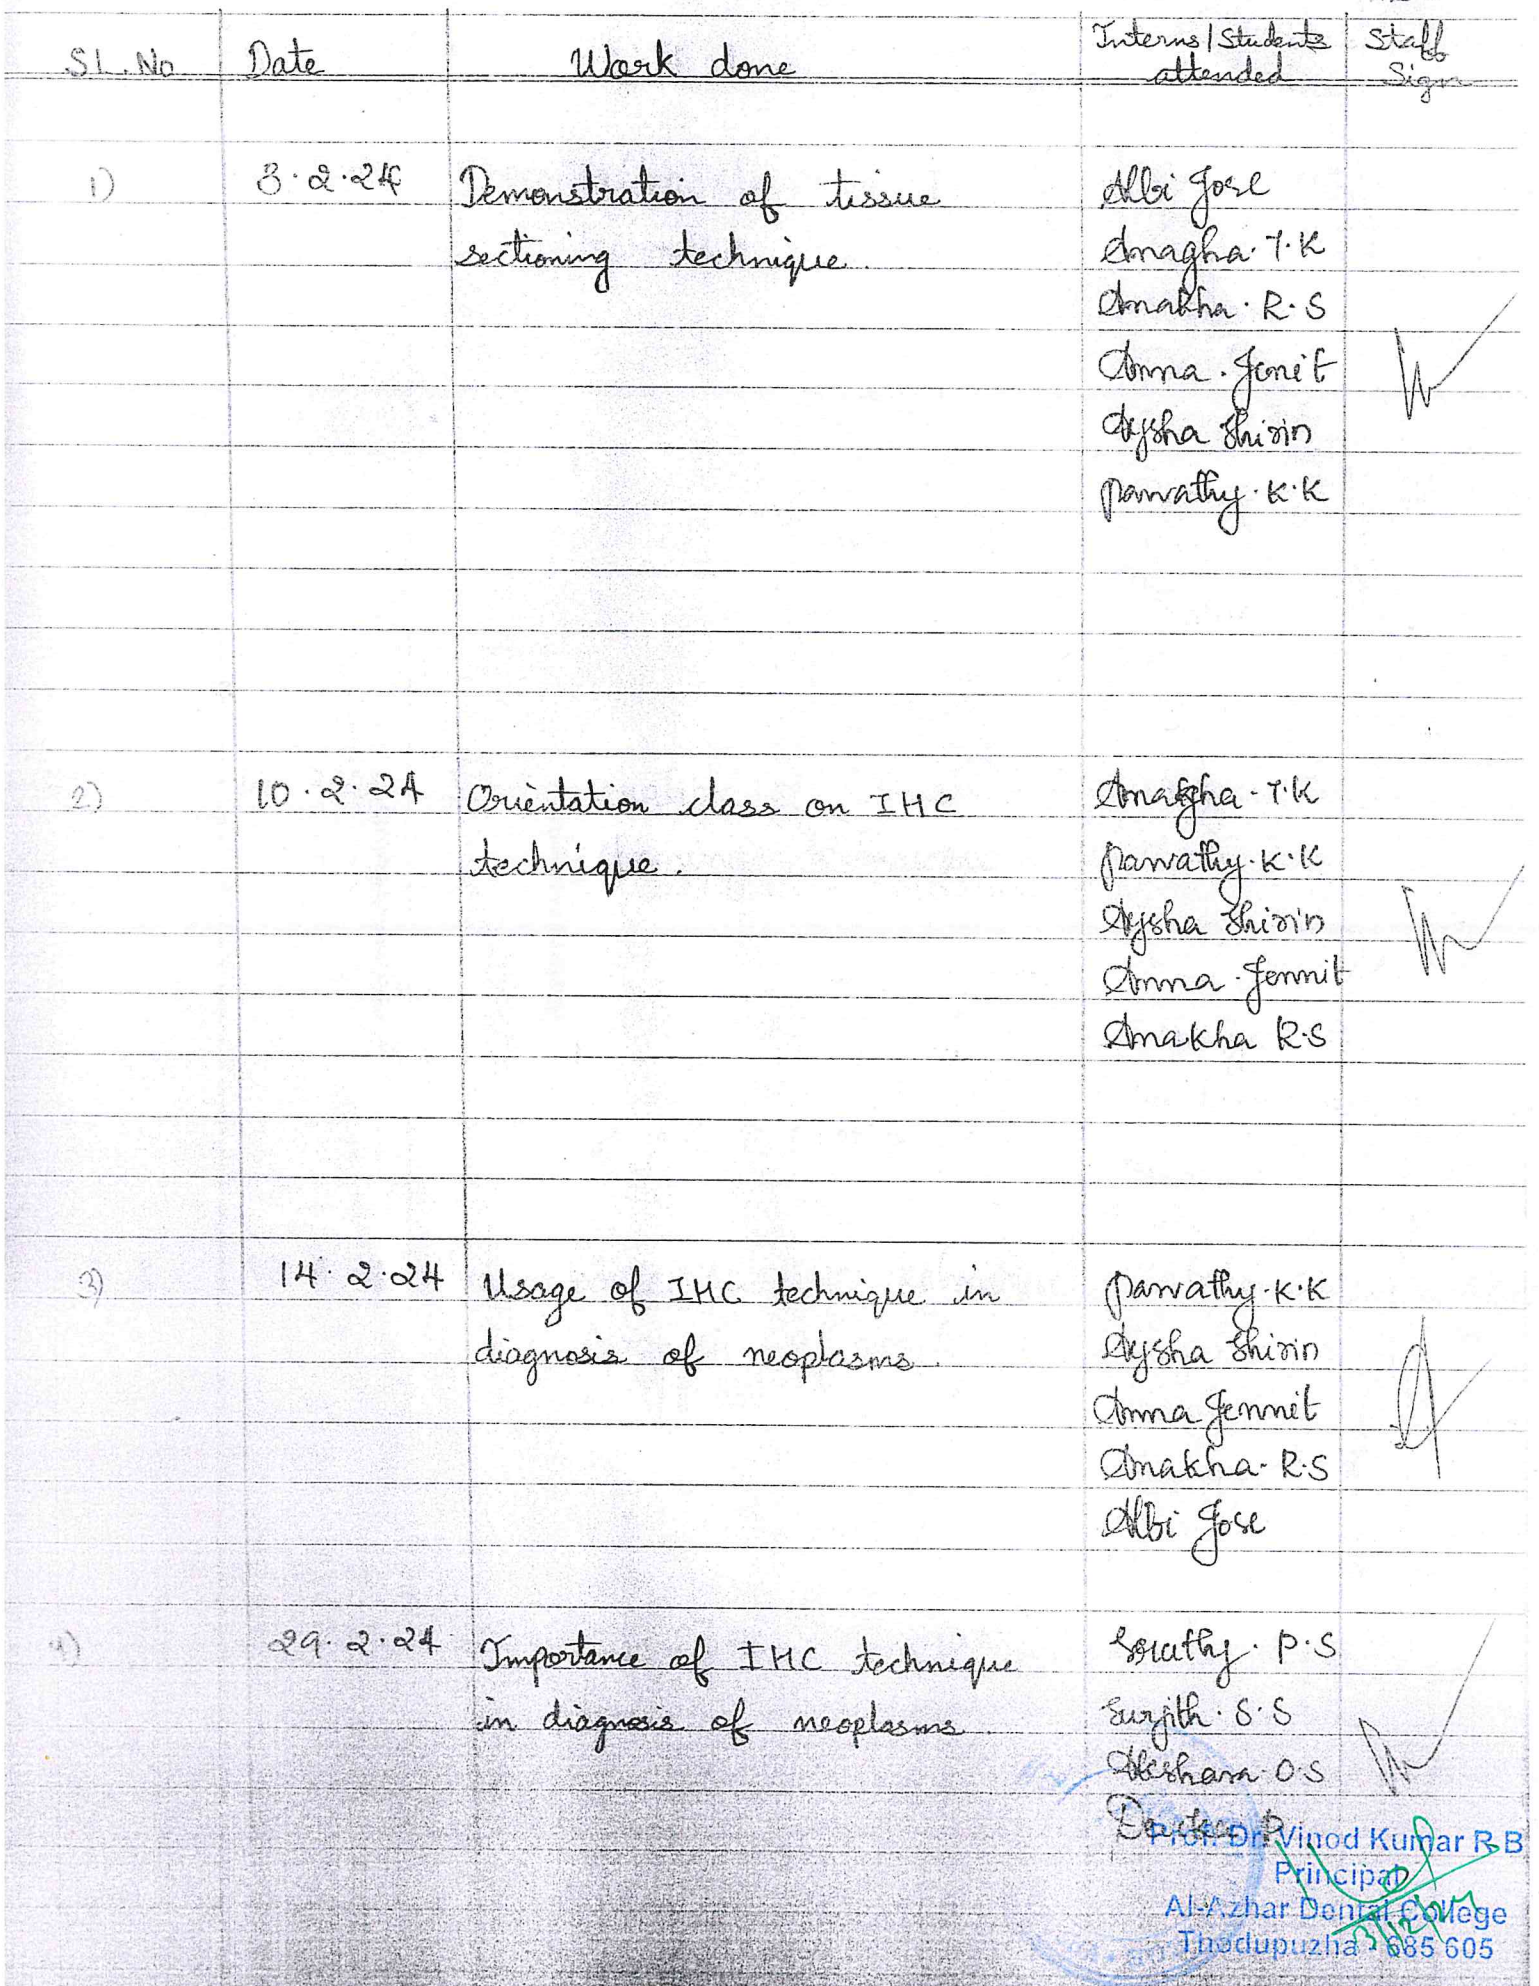 SL.No Date Work done Interns/Students attended Staff Sign
1) 3.2.24 Demonstration of tissue Albi Jose
sectioning technique. Anagha.T.K
Anakha.R.S
Anna.Jenit
Aysha Shirin
Parvathy.K.K
2) 10.2.24 Orientation class on IHC Anagha-T.K
technique. Parvathy.K.K
Aysha Shirin
Anna.Jennit
Anakha R.S
3) 14.2.24 Usage of IHC technique in Parvathy.K.K
diagnosis of neoplasms. Aysha Shirin
Anna Jennit
Anakha-R.S
Albi Jose
4) 29.2.24 Importance of IHC technique Sruthy.P.S
in diagnosis of neoplasms. Surjith.S.S
Akshara.O.S
Prof. Dr. Vinod Kumar R B
Principal
Al-Azhar Dental College
Thodupuzha - 685 605